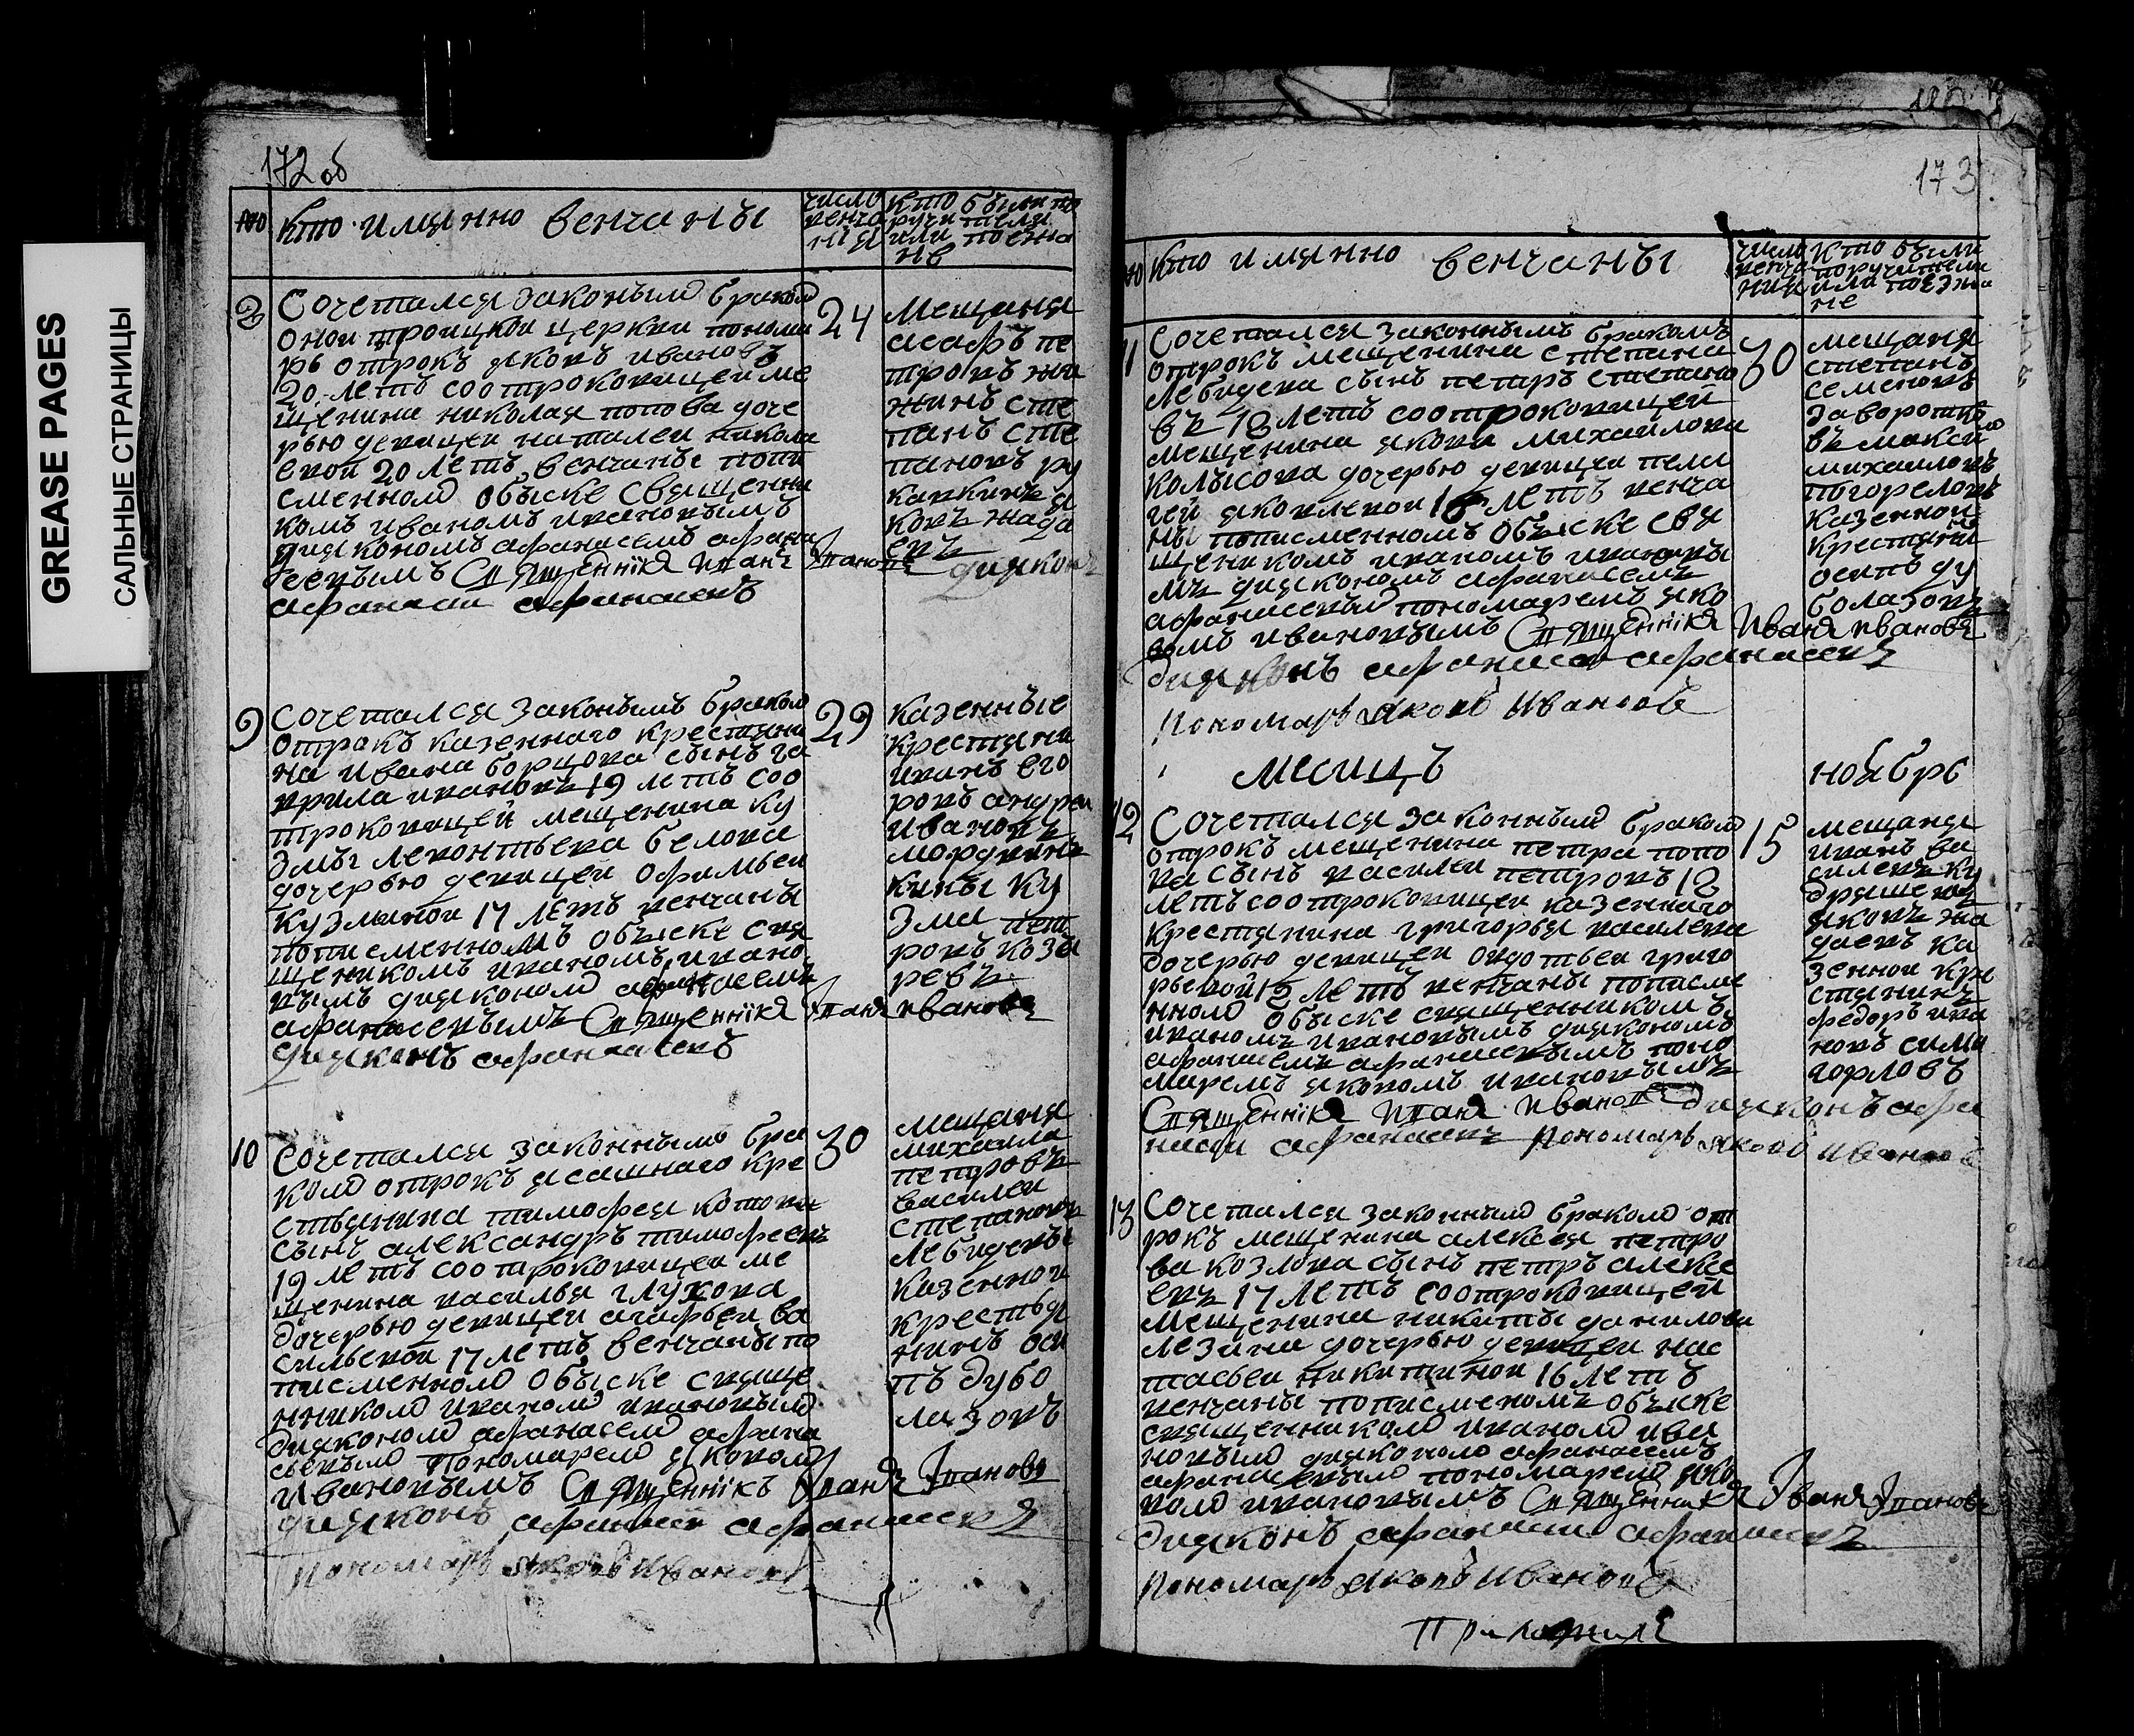 GREASE PAGES
САЛЬНЫЕ СТРАНИЦЫ
172 об
кто имянно венчаны
число венча нія
кто были по ручители или поезжа не
8
Сочетался законымъ бракомъ
оной троицкой церкви понома
рь отрокъ яковъ ивановъ
20 летъ соотроковицей ме
щенина николая попова доче
рью девицей наталеи никола
евой 20 летъ венчаны попи
сменномъ обыске священни
комъ иваномъ ивановымъ
дияконом афанасемъ афана
севымъ Священнікъ Иванъ Ивановъ дияконъ
афанасии афанасевъ
24
мещаня
асафъ пе
тровъ жи
жинъ сте
панъ сте
пановъ ру
кавкинъ я
ковъ жада
евъ
9
сочетался законымъ бракомъ
отрокъ казеннаго крестяни
на ивана борщова сынъ га
врила ивановъ 19 летъ соо
троковицей мещенина ку
змы левонтьева белова
дочерью девицей офимьеи
кузминои 17 летъ венчаны
пописменномъ обыске свя
щеникомъ иваномъ ивано
вымъ дияконом афанасемъ
афанасевымъ Священнікъ Иванъ Ивановъ
дияконъ афанасевъ
29
казенные
крестяни
иванъ его
ровъ андреи
ивановъ
мордвин
кины ку
зма пет
ровъ козы
ревъ
10
сочетался законнымъ бра
комъ отрокъ ясашнаго кре
стьянина тимофея котова
сынъ александръ тимофеевъ
19 летъ соотроковицеи ме
щенина василья глухова
дочерью девицеи агафьеи ва
сильевои 17 летъ венчаны по
писменномъ обыске свяще
нникомъ иваномъ ивановымъ
дияконом афанасем афана
сьевымъ пономарем яковом
ивановымъ Священнікъ Иванъ Ивановъ
дияконъ афанасии афанасевъ
пономарь яковъ Ивановъ
30
мещаня
михаила
петровъ
василеи
степановъ
лебидевы
казеннои
крестья
нинъ оси
пъ дубо
лазовъ
173
кто имянно венчаны
число венча нии
кто были поручители или поезжа не
11
Сочетался законнымъ бракомъ
отрокъ мещенина степана
лебидева сынъ петръ степано
въ 18 летъ соотроковицей
мещенина якова михаилова
колысова дочерью девицеи пела
геи яковлевои 16 летъ венча
ны пописменномъ обыске свя
щеникомъ иваномъ ивановы
мъ дияконом афанасемъ
афанасевым пономаремъ яко
вомъ ивановымъ Священнікъ Иванъ Ивановъ
дияконъ афанасеи афанасевъ
пономарь яковъ Ивановъ
30
мещаня
степанъ
семеновъ
заворотко
въ максим
михаиловъ
погореловъ
казеннои
крестянин
осипъ ду
болазовъ
месицъ
ноябрь
12
Сочетался законнымъ бракомъ
отрокъ мещенина петра попо
ва сынъ василеи петровъ 18
летъ соотроковицеи казеннаго
крестянина григорья василева
дочерью девицеи овдотьеи григо
рьевой 18 летъ венчаны пописме
нномъ обыске священникомъ
иваномъ ивановымъ дияконом
афанасемъ афанасевымъ поно
маремъ яковомъ ивановымъ
Священнікъ Иванъ Ивановъ дияконъ афа
насии афанасевъ пономарь яковъ ивановъ
15
мещаня
иванъ ва
силевъ ку
дряшевъ
яковъ жа
даевъ ка
зеннои кре
стянинъ
федоръ ива
новъ сима
горловъ
13
Сочетался законнымъ бракомъ от
рокъ мещенина алексея петро
ва козлова сынъ петръ алексе
евъ 17 летъ соотроковицей
мещенина никиты данилова
лезина дочерью девицеи нас
тасьеи никитинои 16 летъ
венчаны пописменомъ обыске
священником иваном ива
новымъ дияконом афанасемъ
афанасевымъ пономарем яко
вом ивановымъ Священникъ Иванъ Ивановъ
дияконъ афанасии афанасевъ
пономарь яковъ Ивановъ